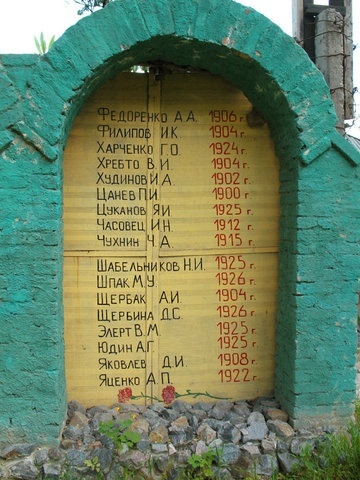 Федоренко А.А. 1906 г.
Филипов И.К. 1904 г.
Харченко Г.О. 1924 г.
Хребто В.И. 1904 г.
Худинов И.А. 1902 г.
Цанев П.И. 1900 г.
Цуканов Я.И. 1925 г.
Часовец И.Н. 1912 г.
Чухнин Ч.А. 1915 г.
Шабельников Н.И. 1925 г.
Шпак М.У. 1926 г.
Щербак А.И. 1904 г.
Щербина Д.С. 1926 г.
Элерт В.М. 1925 г.
Юдин А.Г. 1925 г.
Яковлев Д.И. 1908 г.
Яценко А.П. 1922 г.